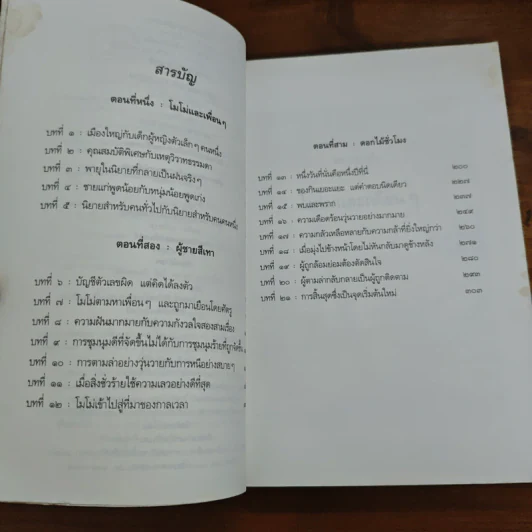 สารบัญ
ตอนที่หนึ่ง : โมโม่และเพื่อนๆ
บทที่ ๑ : เมืองใหญ่กับเด็กผู้หญิงตัวเล็กๆ คนหนึ่ง
บทที่ ๒ : คุณสมบัติพิเศษกับเหตุวิวาทธรรมดา
บทที่ ๓ : พายุในนิยายที่กลายเป็นฝนจริงๆ
บทที่ ๔ : ชายแก่พูดน้อยกับหนุ่มน้อยพูดเก่ง
บทที่ ๕ : นิยายสำหรับคนทั่วไปกับนิยายสำหรับคนคนหนึ่ง
ตอนที่สอง : ผู้ชายสีเทา
บทที่ ๖ : บัญชีตัวเลขผิด แต่คิดได้ลงตัว
บทที่ ๗ : โมโม่ตามหาเพื่อนๆ และถูกมาเยือนโดยศัตรู
บทที่ ๘ : ความฝันมากมายกับความกังวลใจสองสามเรื่อง
บทที่ ๙ : การชุมนุมดีที่จัดขึ้นไม่ได้กับการชุมนุมร้ายที่ถูกจัดขึ้น
บทที่ ๑๐ : การตามล่าอย่างวุ่นวายกับการหนีอย่างสบายๆ
บทที่ ๑๑ : เมื่อสิ่งชั่วร้ายใช้ความเลวอย่างดีที่สุด
บทที่ ๑๒ : โมโม่เข้าไปสู่ที่มาของกาลเวลา
ตอนที่สาม : ดอกไม้ชั่วโมง
บทที่ ๑๓ : หนึ่งวันที่นั่นคือหนึ่งปีที่นี่ ๒๐๐
บทที่ ๑๔ : ของกินเยอะแยะ แต่คำตอบนิดเดียว ๒๒๗
บทที่ ๑๕ : พบและพราก ๒๓๗
บทที่ ๑๖ : ความเดือดร้อนวุ่นวายอย่างมากมาย ๒๔๙
บทที่ ๑๗ : ความกลัวเหลือหลายกับความกล้าที่ยิ่งใหญ่กว่า ๒๖๐
บทที่ ๑๘ : เมื่อมุ่งไปข้างหน้าโดยไม่หันกลับมาดูข้างหลัง ๒๗๑
บทที่ ๑๙ : ผู้ถูกล้อมย่อมต้องตัดสินใจ ๒๘๐
บทที่ ๒๐ : ผู้ตามล่ากลับกลายเป็นผู้ถูกติดตาม ๒๙๓
บทที่ ๒๑ : การสิ้นสุดซึ่งเป็นจุดเริ่มต้นใหม่ ๓๐๓